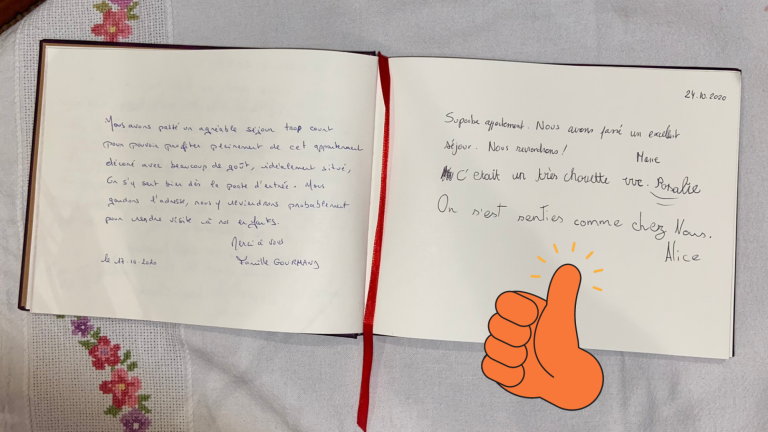 Nous avons passé un agréable séjour trop court
pour pouvoir profiter pleinement de cet appartement
décoré avec beaucoup de goût, idéalement situé,
On s'y sent bien dès la porte d'entrée. Nous
gardons l'adresse, nous y reviendrons probablement
pour rendre visite à nos enfants.
Merci à vous
le 17.10.2020 Famille GOURMAND
24.10.2020
Superbe appartement. Nous avons passé un excellent
séjour. Nous reviendrons!
Marie
C'était un très chouette Rosalie
On s'est senties comme chez Nous.
Alice